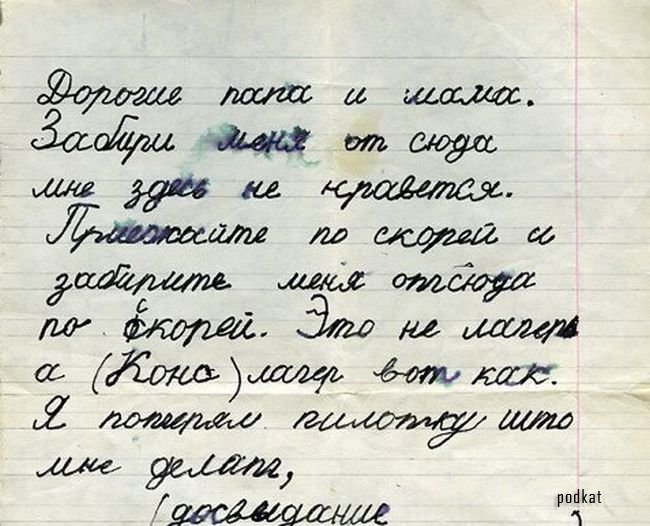 Дорогие папа и мама.
Забири меня от сюда
мне здесь не нравется.
Приезжайте по скорей и
забирите меня отсюда
по скорей. Это не лагерь
а (Конс) лагер вот как.
Я потерял пилотку што
мне делат,
(досвыдание
podkat